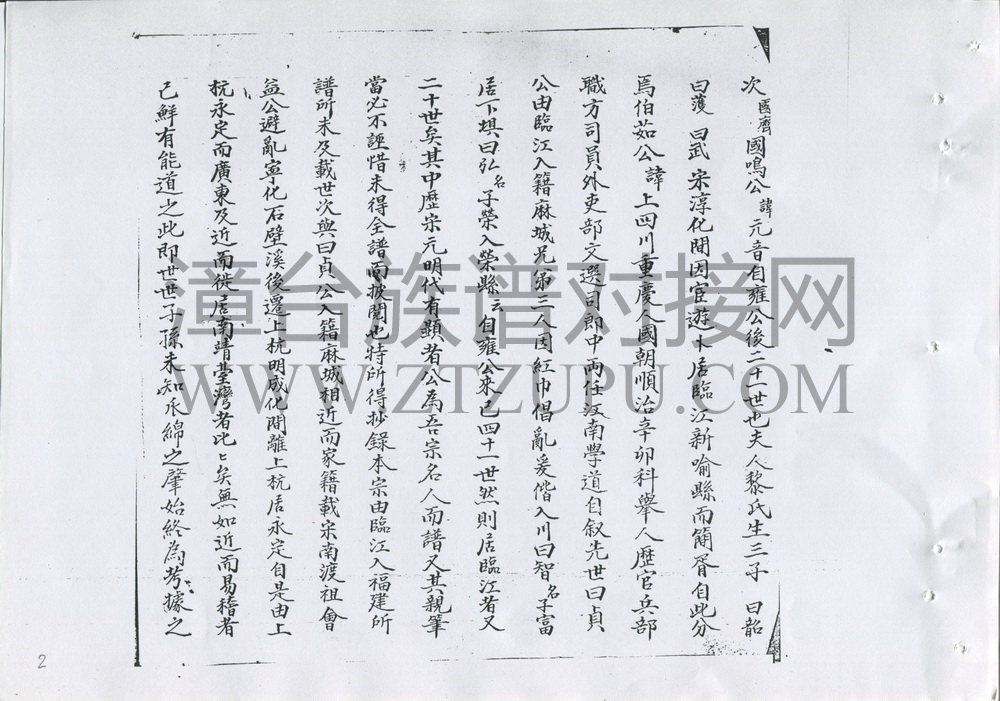 次國齊國鳴公諱元音自雍公後二十一世也夫人黎氏生三子 曰韶
曰頀 曰武 宋淳化間因宦遊卜居臨江新喻縣而簡胥自此分
焉伯茹公諱上四川重慶人國朝順治辛卯科舉人歷官兵部
職方司員外吏部文選司郎中兩任江南學道自叙先世曰貞
公由臨江入籍麻城兄第三人因紅巾倡亂爰偕入川曰智名子富
居下堪曰弘名子榮入榮縣云自雍公來已四十一世然則居臨江者又
二十世矣其中歷宋元明代有顯者公為吾宗名人而譜又其親筆
當必不誣惜未得全譜而披閱也特所得抄錄本宗由臨江入福建所
譜所未及載世次與曰貞公入籍麻城相近而家籍載宋南渡祖會
益公避亂寧化石壁溪後遷上杭明成化間離上杭居永定自是由上
杭永定而廣東及近而徙居南靖臺灣者比比矣無如近而易稽者
已鮮有能道之此即世世子孫未知瓜綿之肇始終為考據之
漳台族谱对接网
WWW.ZTZUPU.COM
2